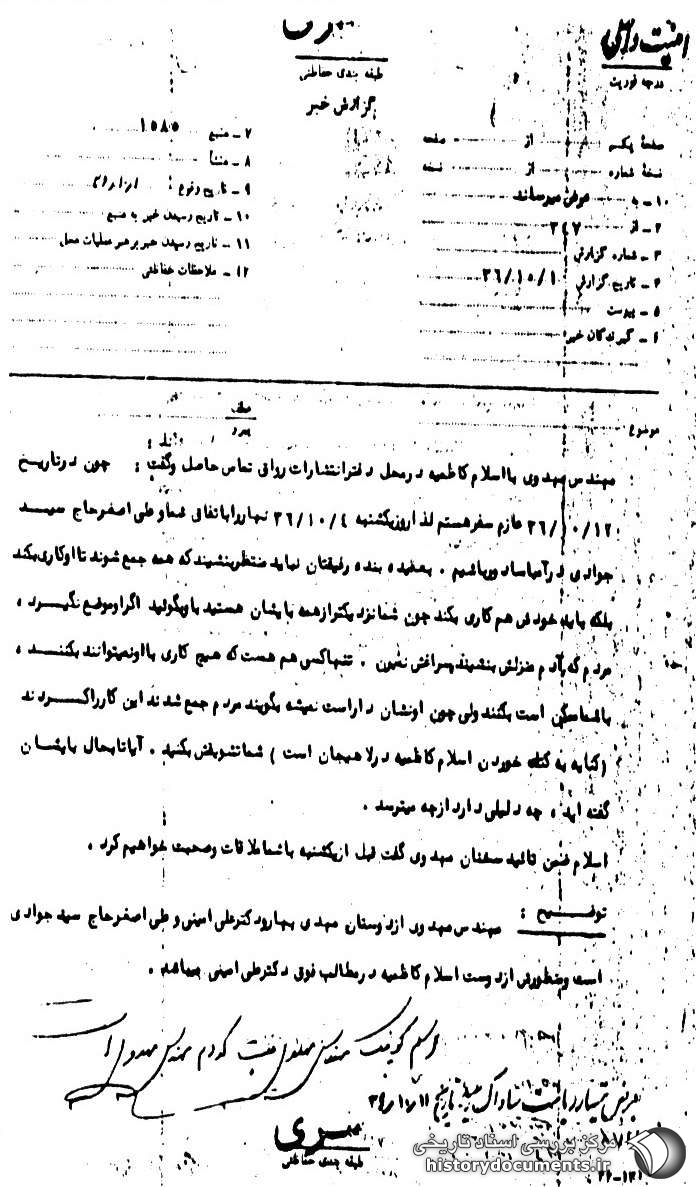 سری
طبقه بندی حفاظتی
گزارش خبر
درجه فوریت
صفحه یکم از صفحه
نسخه شماره از نسخه
۱- به عرض میرساند
۲- از ۳۴۷
۳- شماره گزارش
۴- تاریخ گزارش ۳۶/۱۰/۱
۵- پیوست
۶- گیرندگان خبر
۷- منبع ۱۵۸۵
۸- منشأ
۹- تاریخ وقوع
۱۰- تاریخ رسیدن خبر به منبع
۱۱- تاریخ رسیدن خبر برهبر عملیات محل
۱۲- ملاحظات حفاظتی
موضوع
عطف
پیرو
مهندس مهدوی با اسلام کاظمیه در محل دفتر انتشارات رواق تماس حاصل و گفت: چون در تاریخ
۳۶/۱۰/۱۲ عازم سفر هستم لذا روز یکشنبه ۳۶/۱۰/۴ نهار را باتفاق شما و علی اصغر حاج سید
جوادی در آسیاساد ور باشیم. بعقیده بنده رفیقتان نباید منتظر بنشیند که همه جمع شوند تا او کاری بکند
بلکه باید خودش هم کاری بکند چون شما نزدیکتر از همه بایشان هستید باو بگوئید اگر او موضع نگیرد،
مردم که دم منزلش بنشینند بسراغش نمیرن. تنها کسی هم هست که هیچ کاری با او نمیتوانند بکنند،
با شما ممکن است بکنند ولی چون اونشان دار است نمیشه بگویند مردم جمع شدند این کار را کردند
(کنایه به کتک خوردن اسلام کاظمیه در لاهیجان است) شما تشویقش بکنید. آیا تا بحال بایشان
گفته اید، چه دلیلی دارد از چه میترسد.
اسلام ضمن تائید سخنان مهدوی گفت قبل از یکشنبه با شما ملاقات و صحبت خواهیم کرد.
توضیح: مهندس مهدوی از دوستان مهدی بهار و دکتر علی امینی و علی اصغر حاج سید جوادی
است و منظورش از دوست اسلام کاظمیه در مطالب فوق دکتر علی امینی میباشد.
سری
طبقه بندی حفاظتی
مرکز بررسی اسناد تاریخی
historydocuments.ir